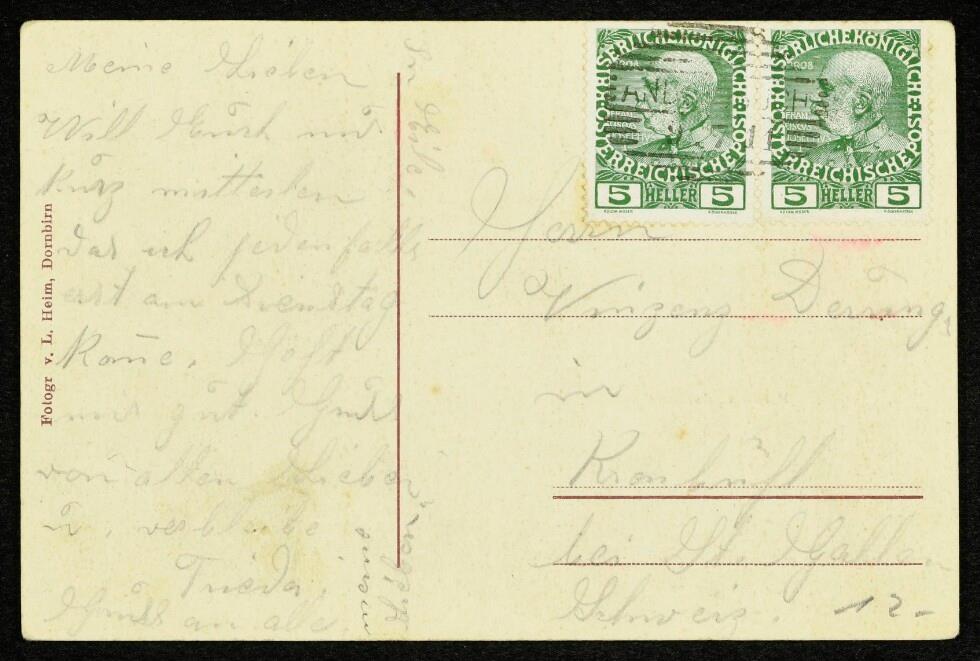 In Eile,
Meine Lieben
Will Euch nur
kurz mitteilen
das ich jedenfalls
erst am Dienstag
kome. Hofft
mir gut. Gruss
von allen Lieben
u. verbleibe
Frieda
Gruss an alle.
Fotogr v. L. Heim, Dornbirn
KAISERLICHEKÖNIGLICHE
ÖSTERREICHISCHEPOST
1908
FRAN
CISCVS
IOSEF I
5 HELLER 5
KAISERLICHEKÖNIGLICHE
ÖSTERREICHISCHEPOST
1908
FRAN
CISCVS
IOSEF I
5 HELLER 5
Herrn
Vinzenz
in
Kronbühl
bei St. Gallen
Schweiz.
12-